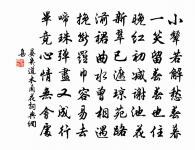 小顰若解愁春暮
一笑留春春也住
晚紅初減謝池花
新翠已遮瓊苑路
湔裙曲水曾相遇
挽斷羅巾容易去
啼珠彈盡又成行
畢竟心情無會處
晏幾道木蘭花詞典網